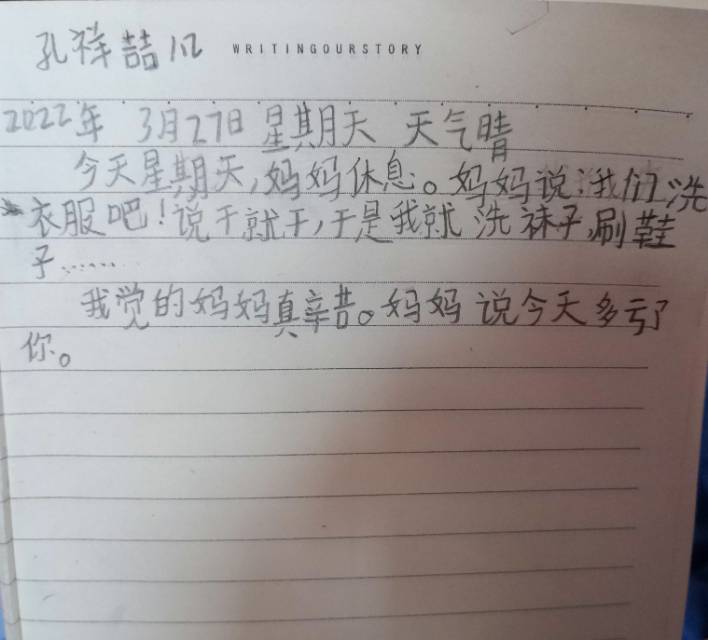 孔祥喆 112 WRITINGOURSTORY
2022年 3月27日 星期天 天气晴
今天星期天,妈妈休息。妈妈说:我们洗
衣服吧!说干就干,于是我就洗袜子,刷鞋
子……
我觉的妈妈真辛苦。妈妈说今天多亏了
你。